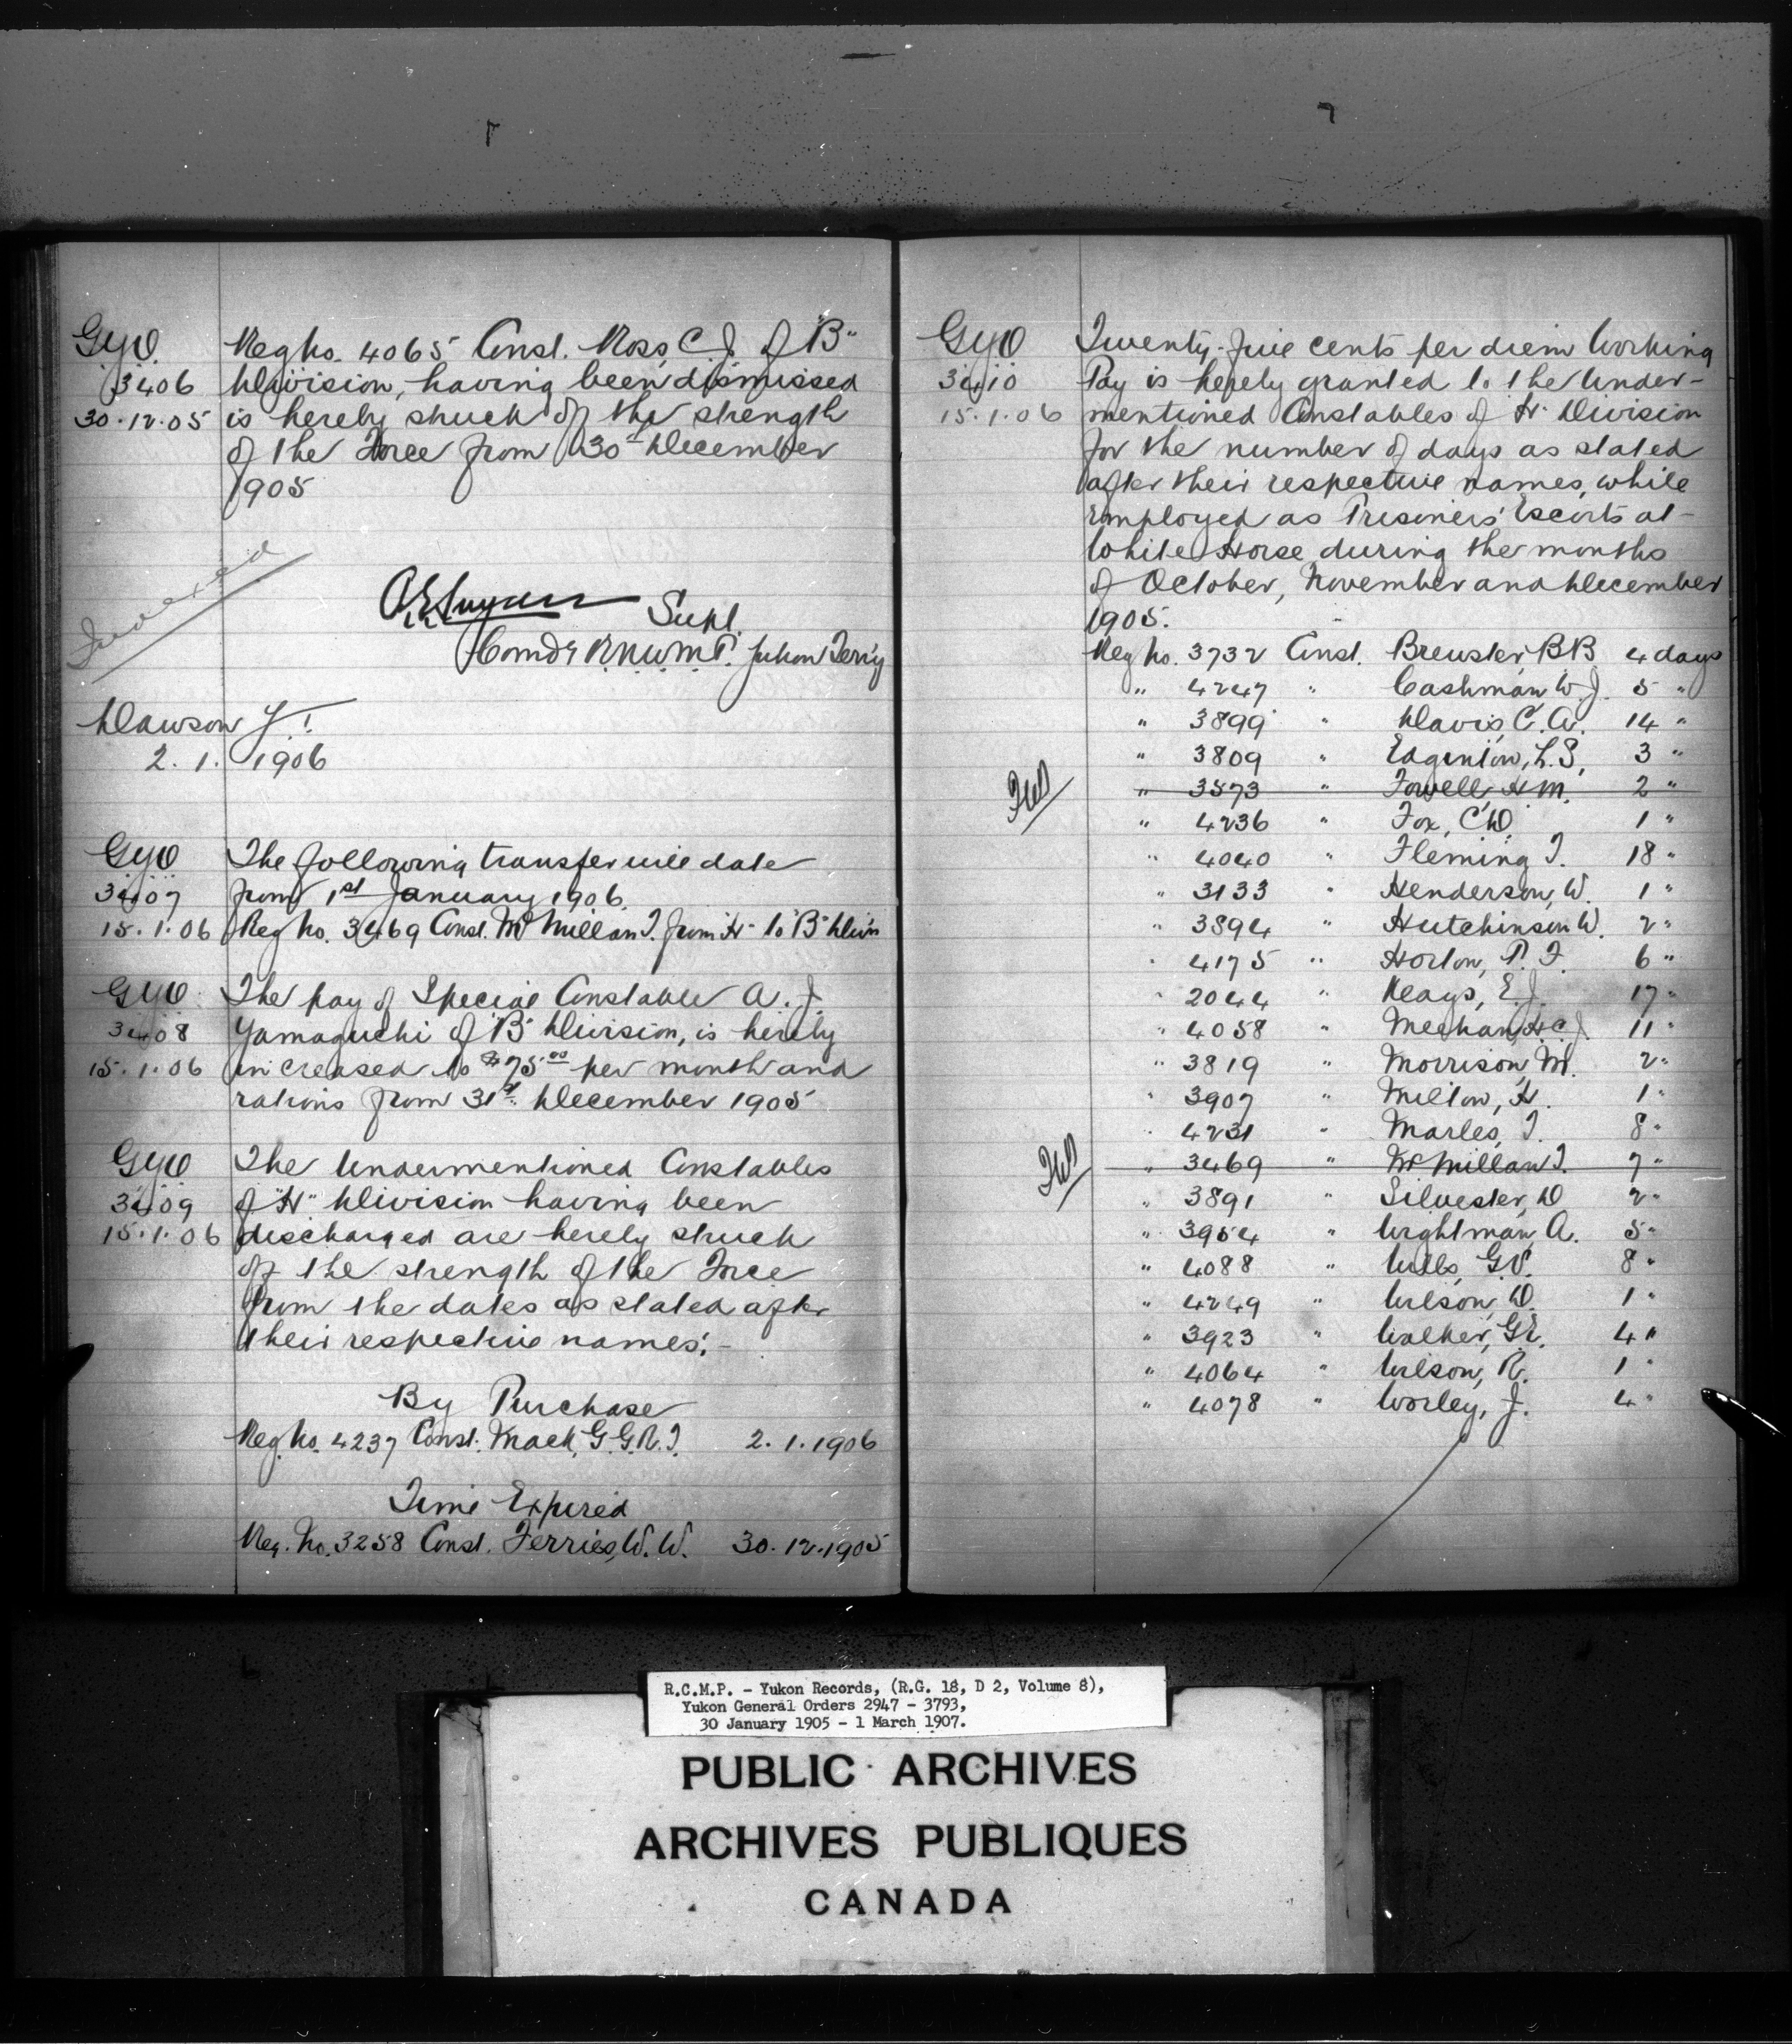 GYO.
3406
30.12.05
Reg No. 4065 Const. Ross, C.J. of "B"
Division, having been dismissed
is hereby struck off the strength
of the Force from 30th December
1905
Indexed
Supt.
Comdg R.N.W.M.P. Yukon Terr'y
Dawson Y.T.
2. 1. 1906
GYO
3407
15.1.06
The following transfer will date
from 1st January 1906.
Reg No. 3469 Const. McMillan T. from "H" to "B" Divn
GYO
3408
15.1.06
The pay of Special Constable A. J.
Yamaguchi of "B" Division, is hereby
increased to $75.00 per month and
rations from 31st December 1905
GYO
3409
15.1.06
The Undermentioned Constables
of "H" Division having been
discharged are hereby struck
off the strength of the Force
from the dates as stated after
their respective names:-
By Purchase
Reg No. 4237 Const. Mack, G.G.R.T. 2.1.1906
Time Expired
Reg. No. 3258 Const. Ferries, W.W. 30.12.1905
GYO
3410
15.1.06
Twenty-five cents per diem Working
Pay is hereby granted to the Under-
mentioned Constables of "H" Division
for the number of days as stated
after their respective names, while
employed as Prisoners' Escorts at
White Horse during the months
of October, November and December
1905.
Reg No. 3732 Const. Brewster, B.B. 4 days
" 4247 " Cashman W.J. 5 "
" 3899 " Davis, C.A. 14 "
" 3809 " Edgenton, L.S. 3 "
" 3573 " Fowell, H.M. 2 "
" 4236 " Fox, C.D. 1 "
" 4040 " Fleming T. 18 "
" 3133 " Henderson, W. 1 "
" 3894 " Hutchinson W. 2 "
" 4175 " Horton, P. F. 6 "
" 2044 " Keays, E.J. 17 "
" 4058 " Meehan, H.C.J. 11 "
" 3819 " Morrison, M. 2 "
" 3907 " Milton, H. 1 "
" 4231 " Marles, T. 8 "
" 3469 " McMillan T. 7 "
" 3891 " Silvester, D 2 "
" 3954 " Wightman, A. 5 "
" 4088 " Wills, G.V. 8 "
" 4249 " Wilson, D. 1 "
" 3923 " Walker, G.E. 4 "
" 4064 " Wilson, R. 1 "
" 4078 " Worley, J. 4 "
R.C.M.P. - Yukon Records, (R.G. 18, D 2, Volume 8),
Yukon General Orders 2947 - 3793,
30 January 1905 - 1 March 1907.
PUBLIC ARCHIVES
ARCHIVES PUBLIQUES
CANADA